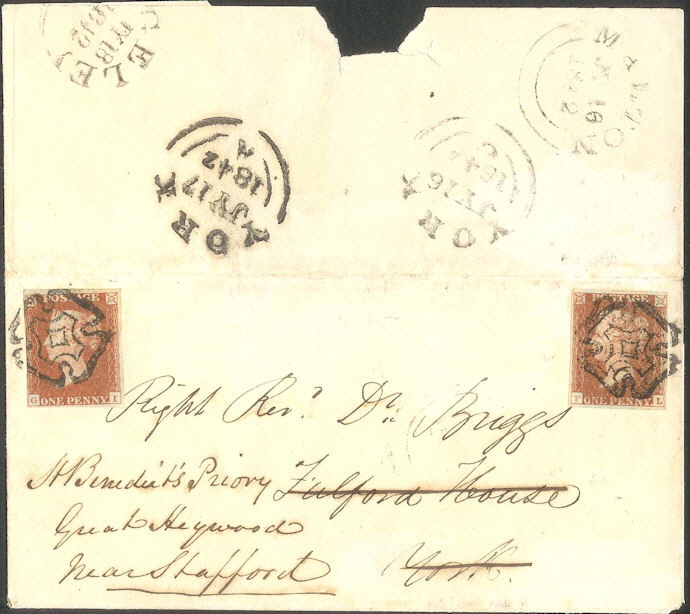 CELEY
JY 18
1842
MALTON
JY 16
1842
YORK
JY 17
1842
A
YORK
JY 16
184
C
POSTAGE
G ONE PENNY I
POSTAGE
F ONE PENNY L
Right Revd. Dr. Briggs
St Benedict's Priory Fulford House
Great Heywood York.
Near Stafford